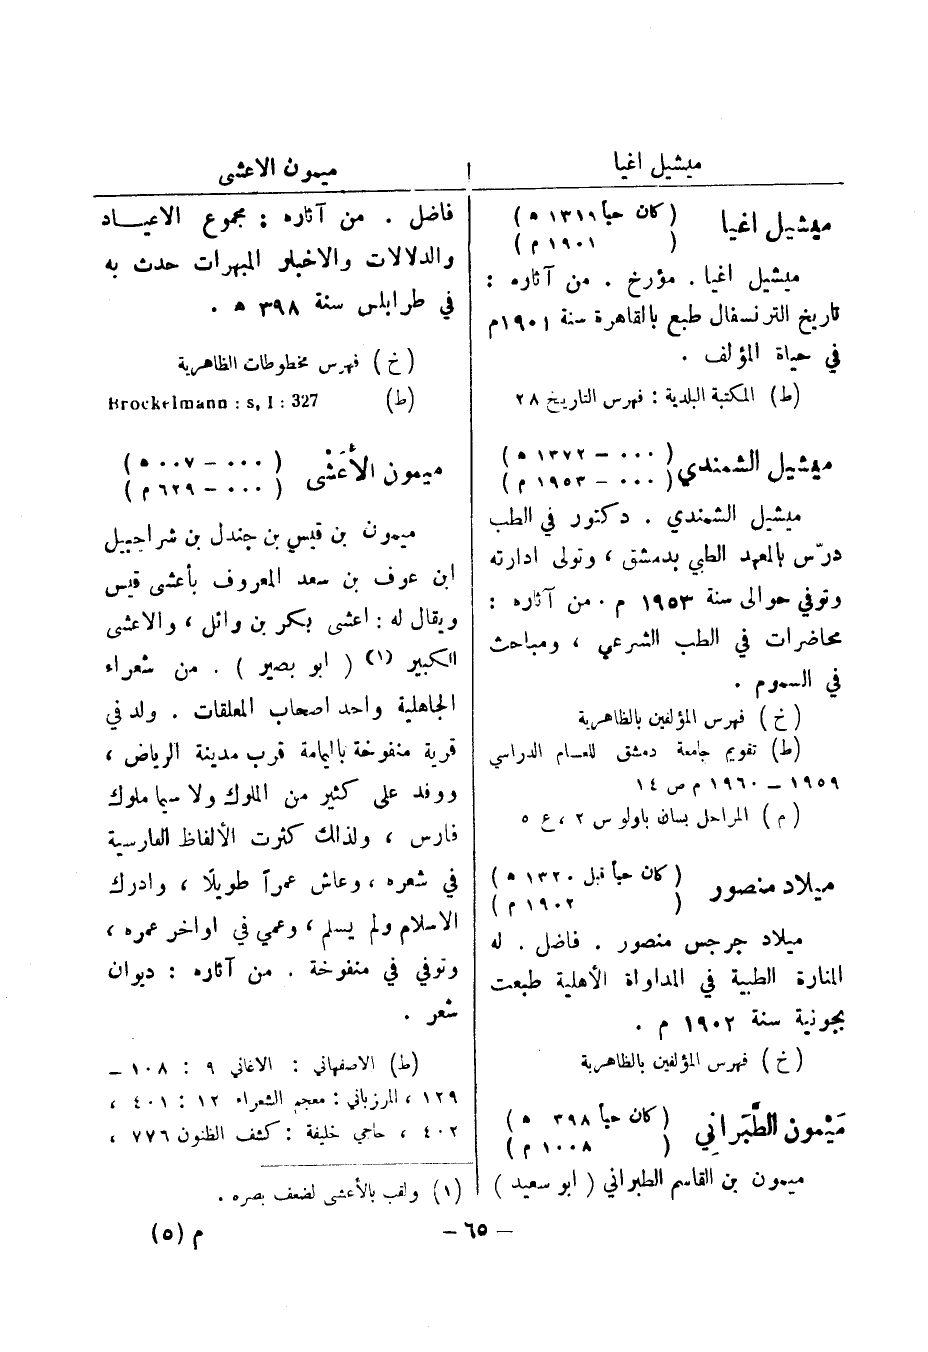 ميشيل اغيا
ميشيل اغيا
( كان حياً ١٣١٩ ه )
( ١٩٠١ م )
ميشيل اغيا . مؤرخ . من آثاره :
تاريخ الترنسفال طبع بالقاهرة سنة ١٩٠١م
في حياة المؤلف .
(ط) المكتبة البلدية : فهرس التاريخ ٢٨
ميشيل الشمندي
( ٠٠٠ – ١٣٧٢ ه )
( ٠٠٠ – ١٩٥٣ م )
ميشيل الشمندي . دكتور في الطب
درّس بالمعهد الطبي بدمشق ، وتولى ادارته
وتوفي حوالى سنة ١٩٥٣ م . من آثاره :
محاضرات في الطب الشرعي ، ومباحث
في السموم .
( خ ) فهرس المؤلفين بالظاهرية
(ط) تقويم جامعة دمشق للعـام الدراسي
١٩٥٩ – ١٩٦٠ م ص ١٤
( م ) المراحل بسان باولو س ٢ ، ع ٥
ميلاد منصور
( كان حياً قبل ١٣٢٠ ه )
( ١٩٠٢ م )
ميلاد جرجس منصور . فاضل . له
المنارة الطبية في المداواة الأهلية طبعت
بجونية سنة ١٩٠٢ م .
( خ ) فهرس المؤلفين بالظاهرية
مَيْمون الطَّبَراني
( كان حياً ٣٩٨ ه )
( ١٠٠٨ م )
ميمون بن القاسم الطبراني ( ابو سعيد )
ميمون الاعشى
فاضل . من آثاره : مجموع الاعيـــاد
والدلالات والاخبار المبهرات حدث به
في طرابلس سنة ٣٩٨ ه .
( خ ) فهرس مخطوطات الظاهرية
(ط) Brockelmann : s, I : 327
ميمون الأَعْشَى
( ٠٠٠ – ٠٠٧ ه )
( ٠٠٠ – ٦٢٩ م )
ميمون بن قيس بن جندل بن شراحبيل
ابن عوف بن سعد المعروف بأعشى قيس
ويقال له : اعشى بكر بن وائل ، والاعشى
الكبير (١) ( ابو بصير ) . من شعراء
الجاهلية واحد اصحاب المعلقات . ولد في
قرية منفوخة باليمامة قرب مدينة الرياض ،
ووفد على كثير من الملوك ولا سيما ملوك
فارس ، ولذلك كثرت الألفاظ الفارسية
في شعره ، وعاش عمراً طويلًا ، وادرك
الاسلام ولم يسلم ، وعمي في اواخر عمره ،
وتوفي في منفوخة . من آثاره : ديوان
شعر .
(ط) الاصفهاني : الاغاني ٩ : ١٠٨ –
١٢٩ ، المرزباني : معجم الشعراء ١٢ : ٤٠١ ،
٤٠٢ ، حاجي خليفة : كشف الظنون ٧٧٦ ،
(١) ولقب بالأعشى لضعف بصره .
– ٦٥ –
م (٥)